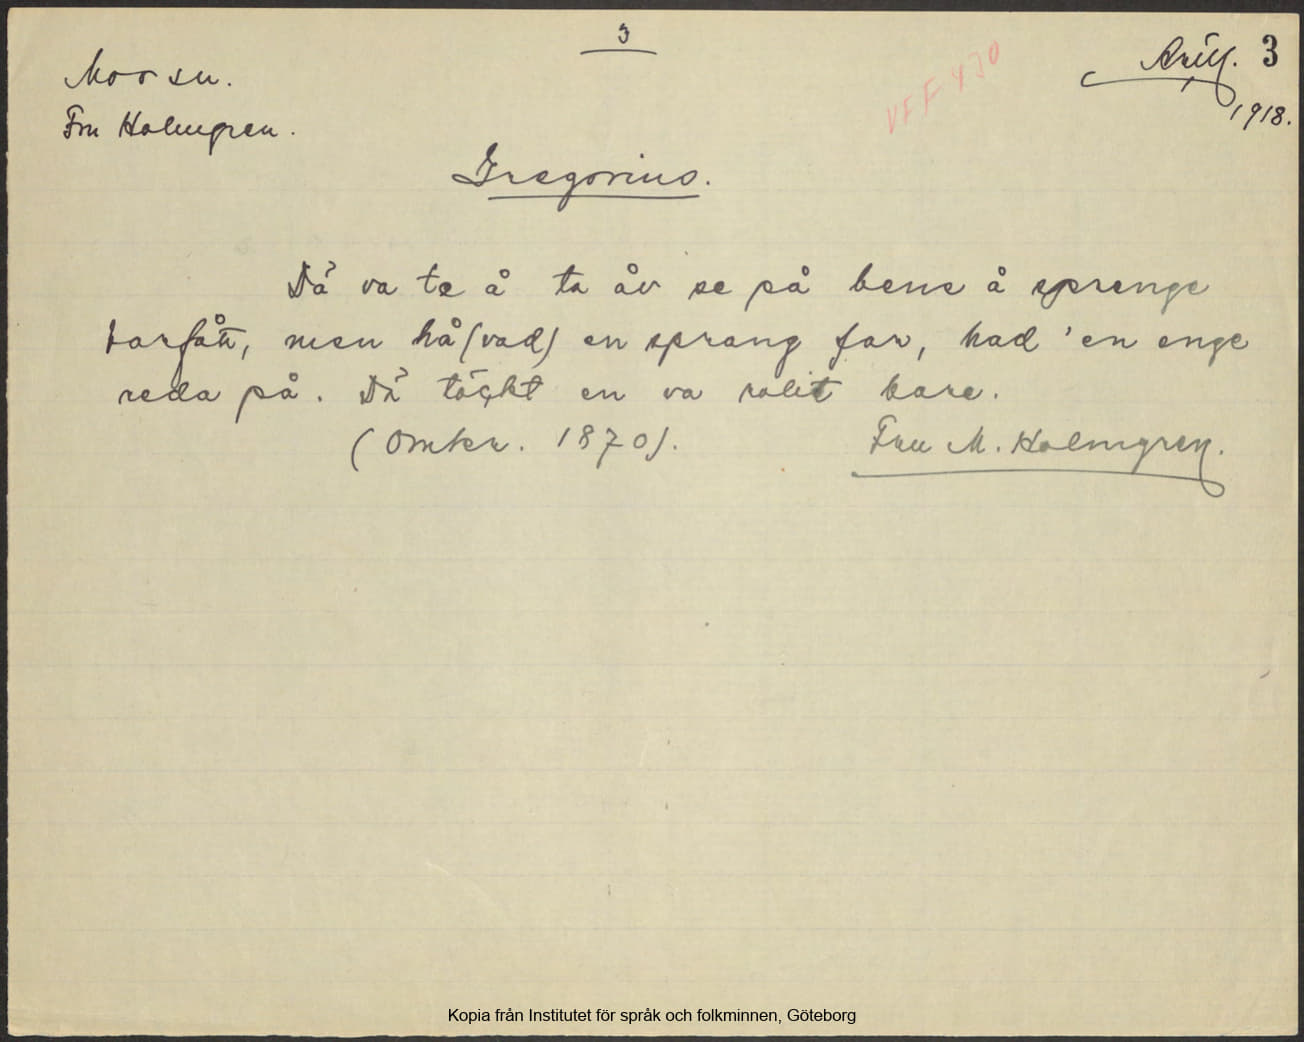 3
3
1918.
VFF 430
Fru Holmgren.
Gregorius.
Dä va te å ta åv se på bena å sprenge
barfått, men hå (vad) en sprang far, had 'en enge
reda på. Dä töckt en va rolit bare.
(Omkr. 1870). Fru M. Holmgren.
Kopia från Institutet för språk och folkminnen, Göteborg